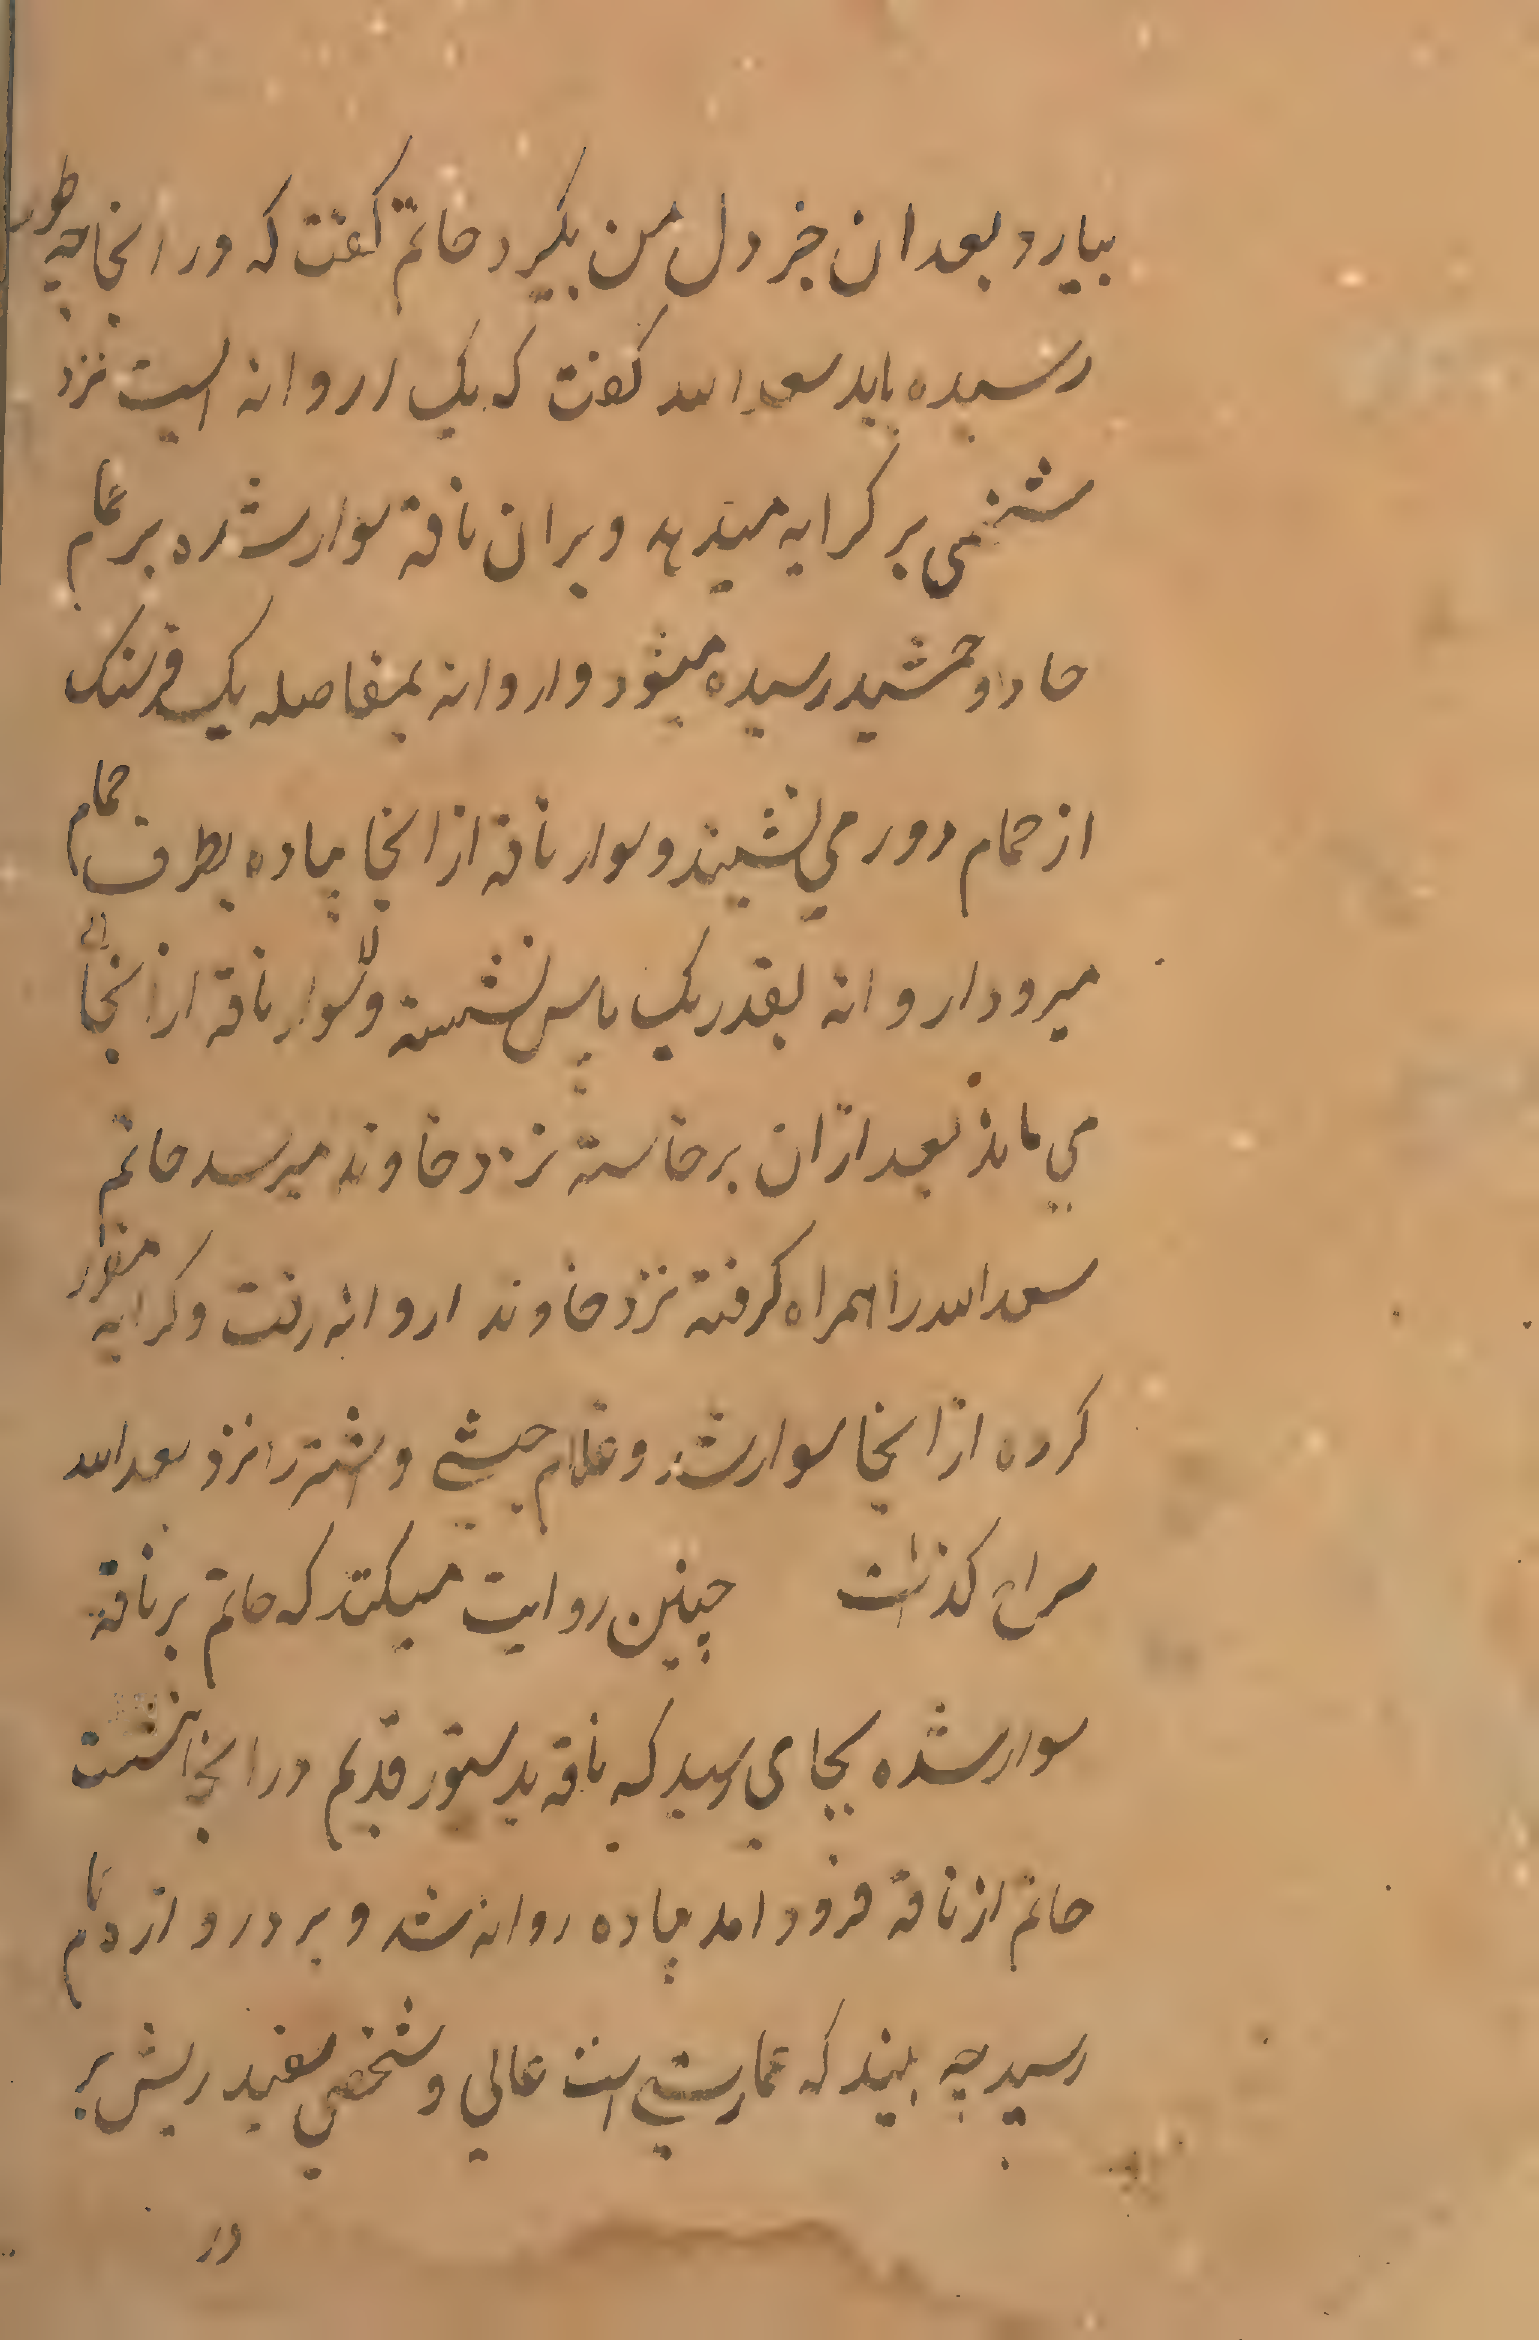 بیارد بعد ان خر دل من بکیرد حاتم کفت که در انجا چه طور
رسیده باید سعد الله کفت که یک اروانه است نزد
شخصی بر کرایه میدهد و بران ناقه سوار شده بر حمام
جادو جمشید رسیده میشود و اروانه بمفاصله یک فرسنک
از حمام دور می نشیند و سوار ناقه از انجا پیاده بطرف حمام
میرود اروانه بقدر یک پاس نشسته و سوار ناقه از انجا
می ماند بعد ازان برخاسته نزد خاوند میرسد حاتم
سعد الله را همراه کرفته نزد خاوند اروانه رفت و کرایه مقرر
کرده از انجا سوار شد و غلام حبشی و اشتر را نزد سعد الله
سراج کذاشت چنین روایت میکنند که حاتم بر ناقه
سوار شده بجای رسید که ناقه بدستور قدیم در انجا بنشست
حاتم از ناقه فرود امد پیاده روانه شد و بر دروازه
رسید چه بیند که عمارتی است عالی و شخصی سفید ریش بر
در